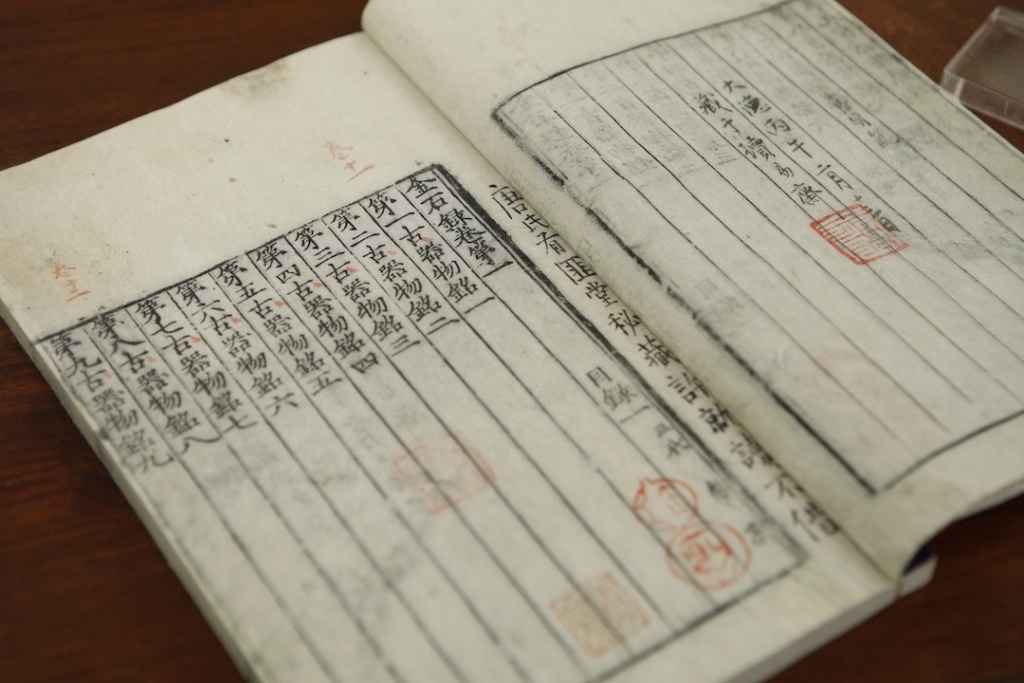 大德丙午二月十一日
于讀易齋
唐氏有匪堂秘藏許就讀不借
目錄一
金石錄卷第一
第一古器物銘一
第二古器物銘二
第三古器物銘三
第四古器物銘四
第五古器物銘五
第六古器物銘六
第七古器物銘七
第八古器物銘八
第九古器物銘九